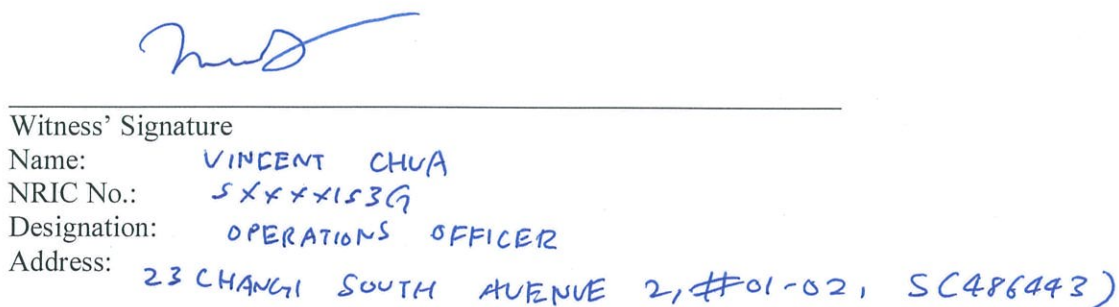 Witness’ Signature
Name: VINCENT CHUA
NRIC No.: SXXXX153G
Designation: OPERATIONS OFFICER
Address: 23 CHANGI SOUTH AVENUE 2, #01-02, S(486443)